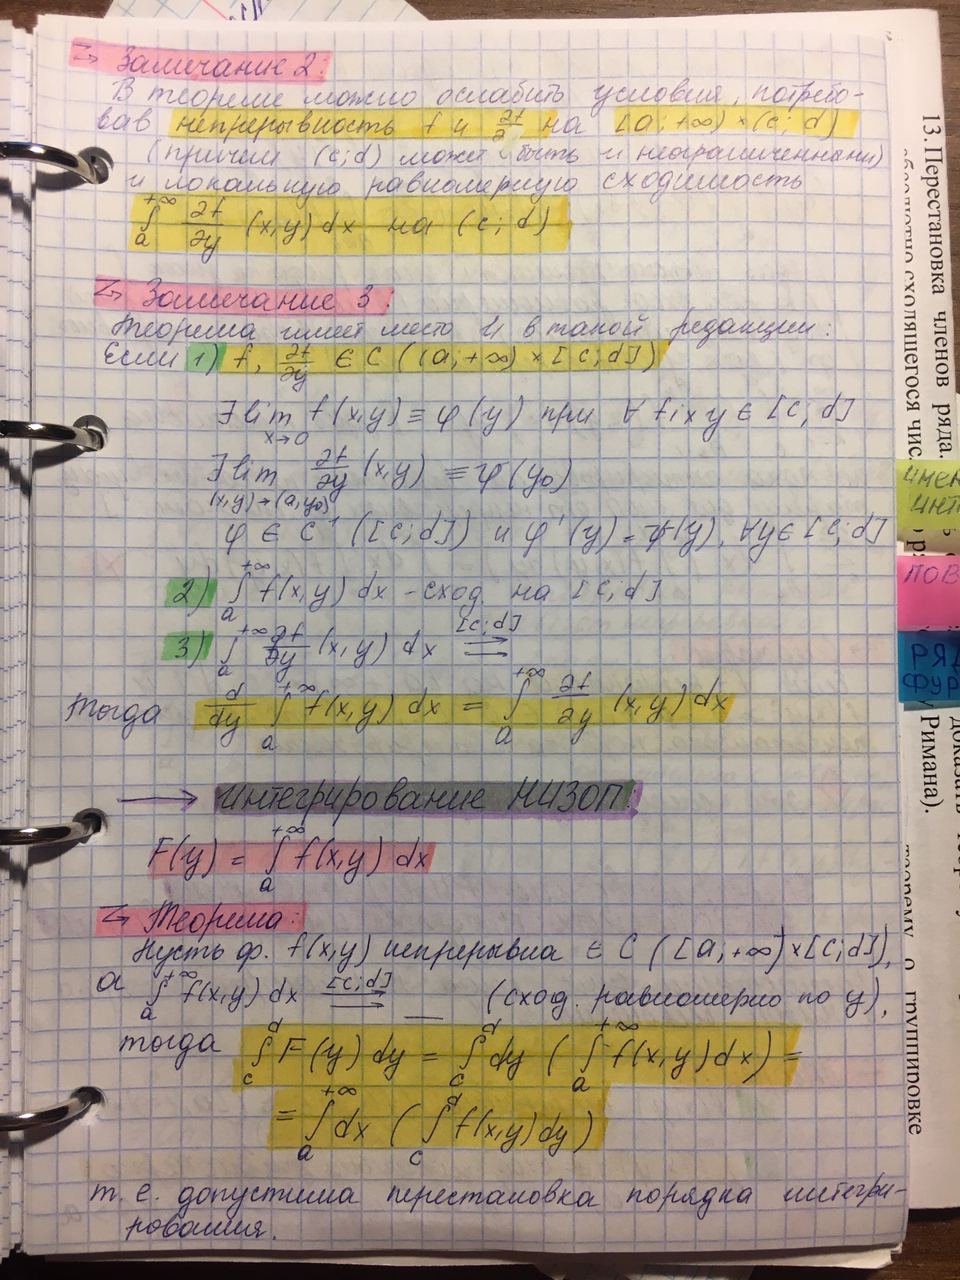 Замечание 2:
В теореме можно ослабить условия, потребо-
вав непрерывность f и ∂f/∂y на [a; +∞) × (c; d)
(причем (c; d) может быть и неограниченным)
и локальную равномерную сходимость
∫_a^{+∞} ∂f/∂y (x,y) dx на (c; d)
Замечание 3:
Теорема имеет место и в такой редакции:
Если 1) f, ∂f/∂y ∈ C ((a; +∞) × [c; d])
∃ lim_{x→0} f(x,y) ≡ φ(y) при ∀ fix y ∈ [c; d]
∃ lim_{(x,y)→(a,y₀)} ∂f/∂y (x,y) ≡ ψ(y₀)
φ ∈ C¹ ([c; d]) и φ'(y) = ψ(y), ∀y ∈ [c; d]
2) ∫_a^{+∞} f(x,y) dx - сход. на [c; d]
3) ∫_a^{+∞} ∂f/∂y (x,y) dx ⇉^{[c;d]}
Тогда d/dy ∫_a^{+∞} f(x,y) dx = ∫_a^{+∞} ∂f/∂y (x,y) dx
→ Интегрирование НИЗОП:
F(y) = ∫_a^{+∞} f(x,y) dx
Теорема:
Пусть ф. f(x,y) непрерывна ∈ C ([a; +∞) × [c; d]),
а ∫_a^{+∞} f(x,y) dx ⇉^{[c;d]} __ (сход. равномерно по y),
тогда ∫_c^d F(y) dy = ∫_c^d dy ( ∫_a^{+∞} f(x,y) dx) =
= ∫_a^{+∞} dx ( ∫_c^d f(x,y) dy)
т. е. допустима перестановка порядка интегри-
рования.
13. Перестановка членов ряда.
абсолютно сходящегося
Римана).
теорему о группировке
ПОВ
РЯД
ФУР